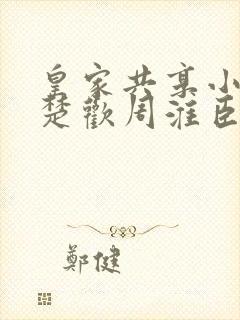 皇家共享小
楚歡周淮臣
鄭健